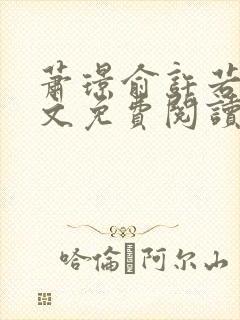 蕭璟俞許若
文免費閱讀
哈倫·阿尔山